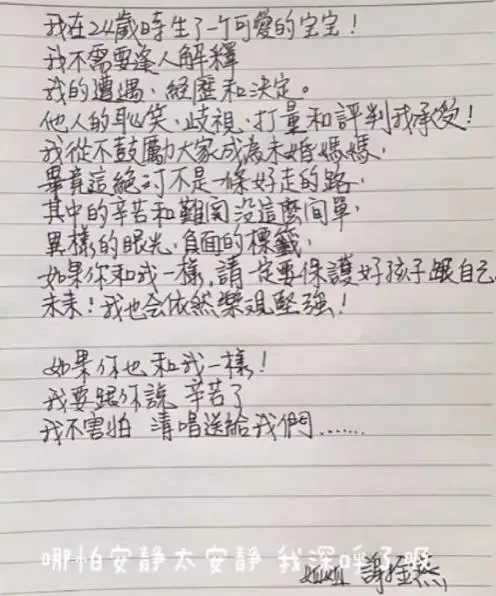 我在24歲時生了一个可愛的宝宝！
我不需要逢人解釋
我的遭遇、經歷和決定。
他人的恥笑、歧視、打量和評判我承受！
我從不鼓勵大家成為未婚媽媽，
畢竟這絕对不是一條好走的路，
其中的辛苦和難関没這麼间單，
異樣的眼光，負面的標籤，
如果你和我一樣，請一定要保護好孩子跟自己
未來！我也会依然樂观堅強！
如果你也和我一樣！
我要跟你說 辛苦了
我不害怕 清唱送給我們……
哪怕安静太安静 我深呼了吸
姐姐 謝金燕